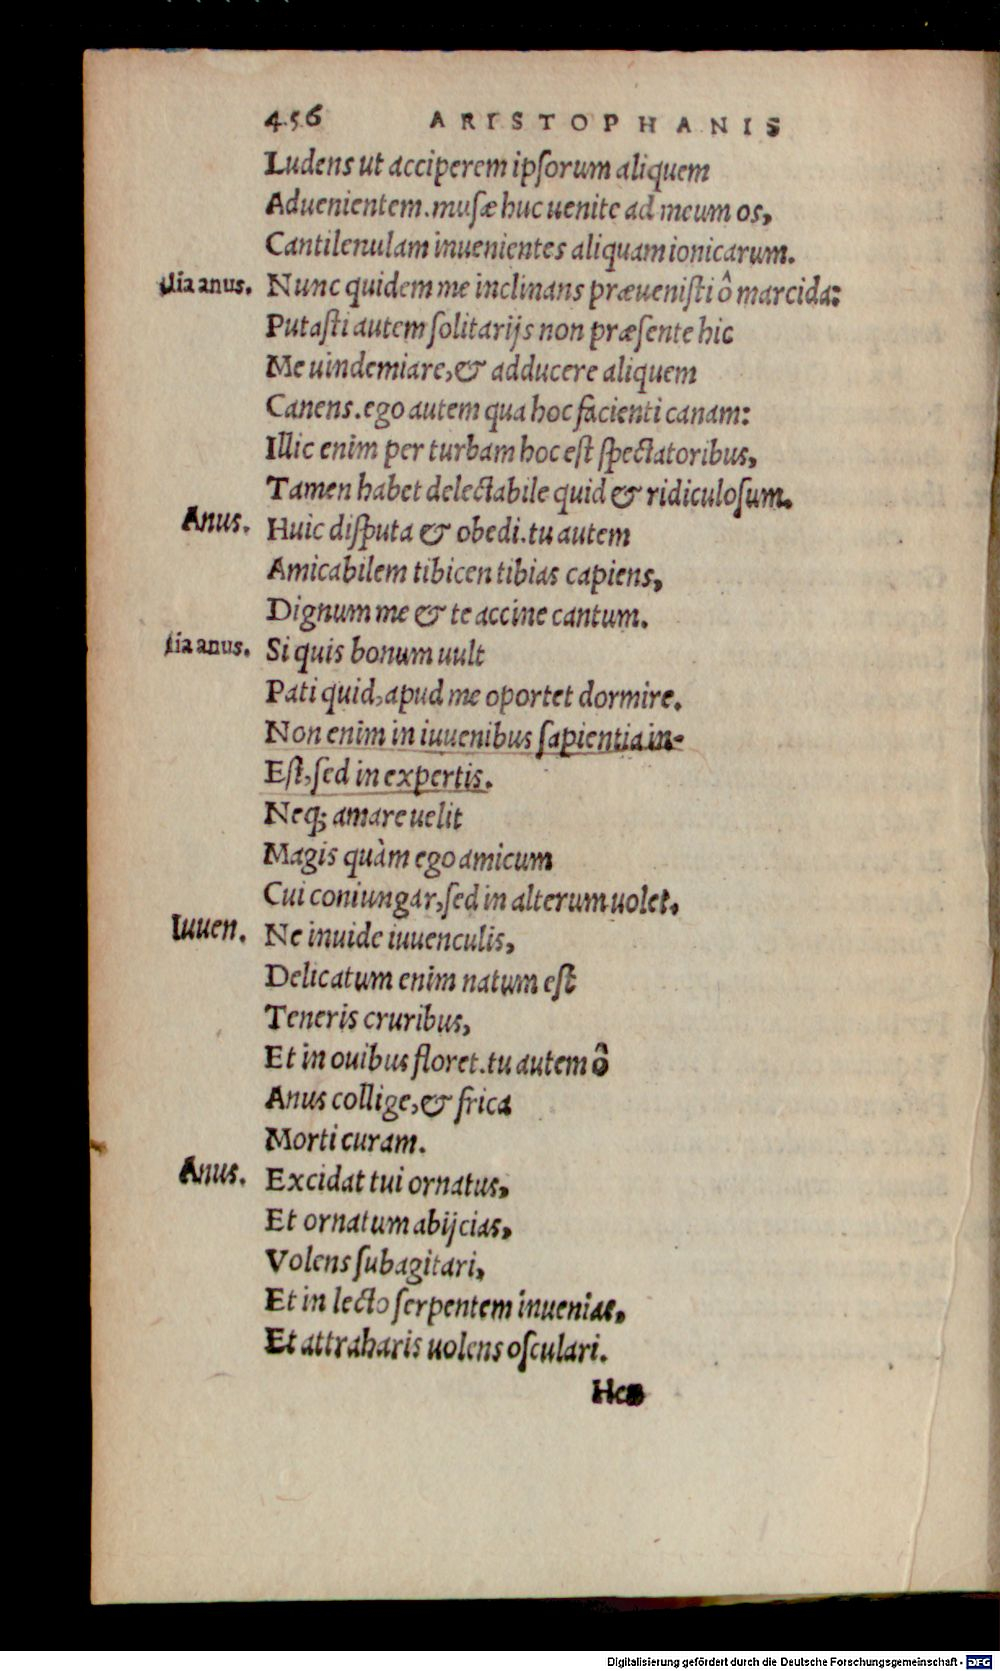 456 ARISTOPHANIS
Ludens ut acciperem ipſorum aliquem
Aduenientem. muſæ huc uenite ad meum os,
Cantilenulam inuenientes aliquam ionicarum.
lia anus. Nunc quidem me inclinans præueniſti ô marcida:
Putaſti autem ſolitarijs non præſente hic
Me uindemiare, & adducere aliquem
Canens. ego autem qua hoc facienti canam:
Illic enim per turbam hoc eſt ſpectatoribus,
Tamen habet delectabile quid & ridiculoſum.
Anus. Huic diſputa & obedi. tu autem
Amicabilem tibicen tibias capiens,
Dignum me & te accine cantum.
lia anus. Si quis bonum uult
Pati quid, apud me oportet dormire.
Non enim in iuuenibus ſapientia in-
Eſt, ſed in expertis.
Neq; amare uelit
Magis quàm ego amicum
Cui coniungar, ſed in alterum uolet.
Iuuen. Ne inuide iuuenculis,
Delicatum enim natum eſt
Teneris cruribus,
Et in ouibus floret. tu autem ô
Anus collige, & frica
Morti curam.
Anus. Excidat tui ornatus,
Et ornatum abijcias,
Volens ſubagitari,
Et in lecto ſerpentem inuenias,
Et attraharis uolens oſculari.
Digitalisierung gefördert durch die Deutsche Forschungsgemeinschaft - DFG